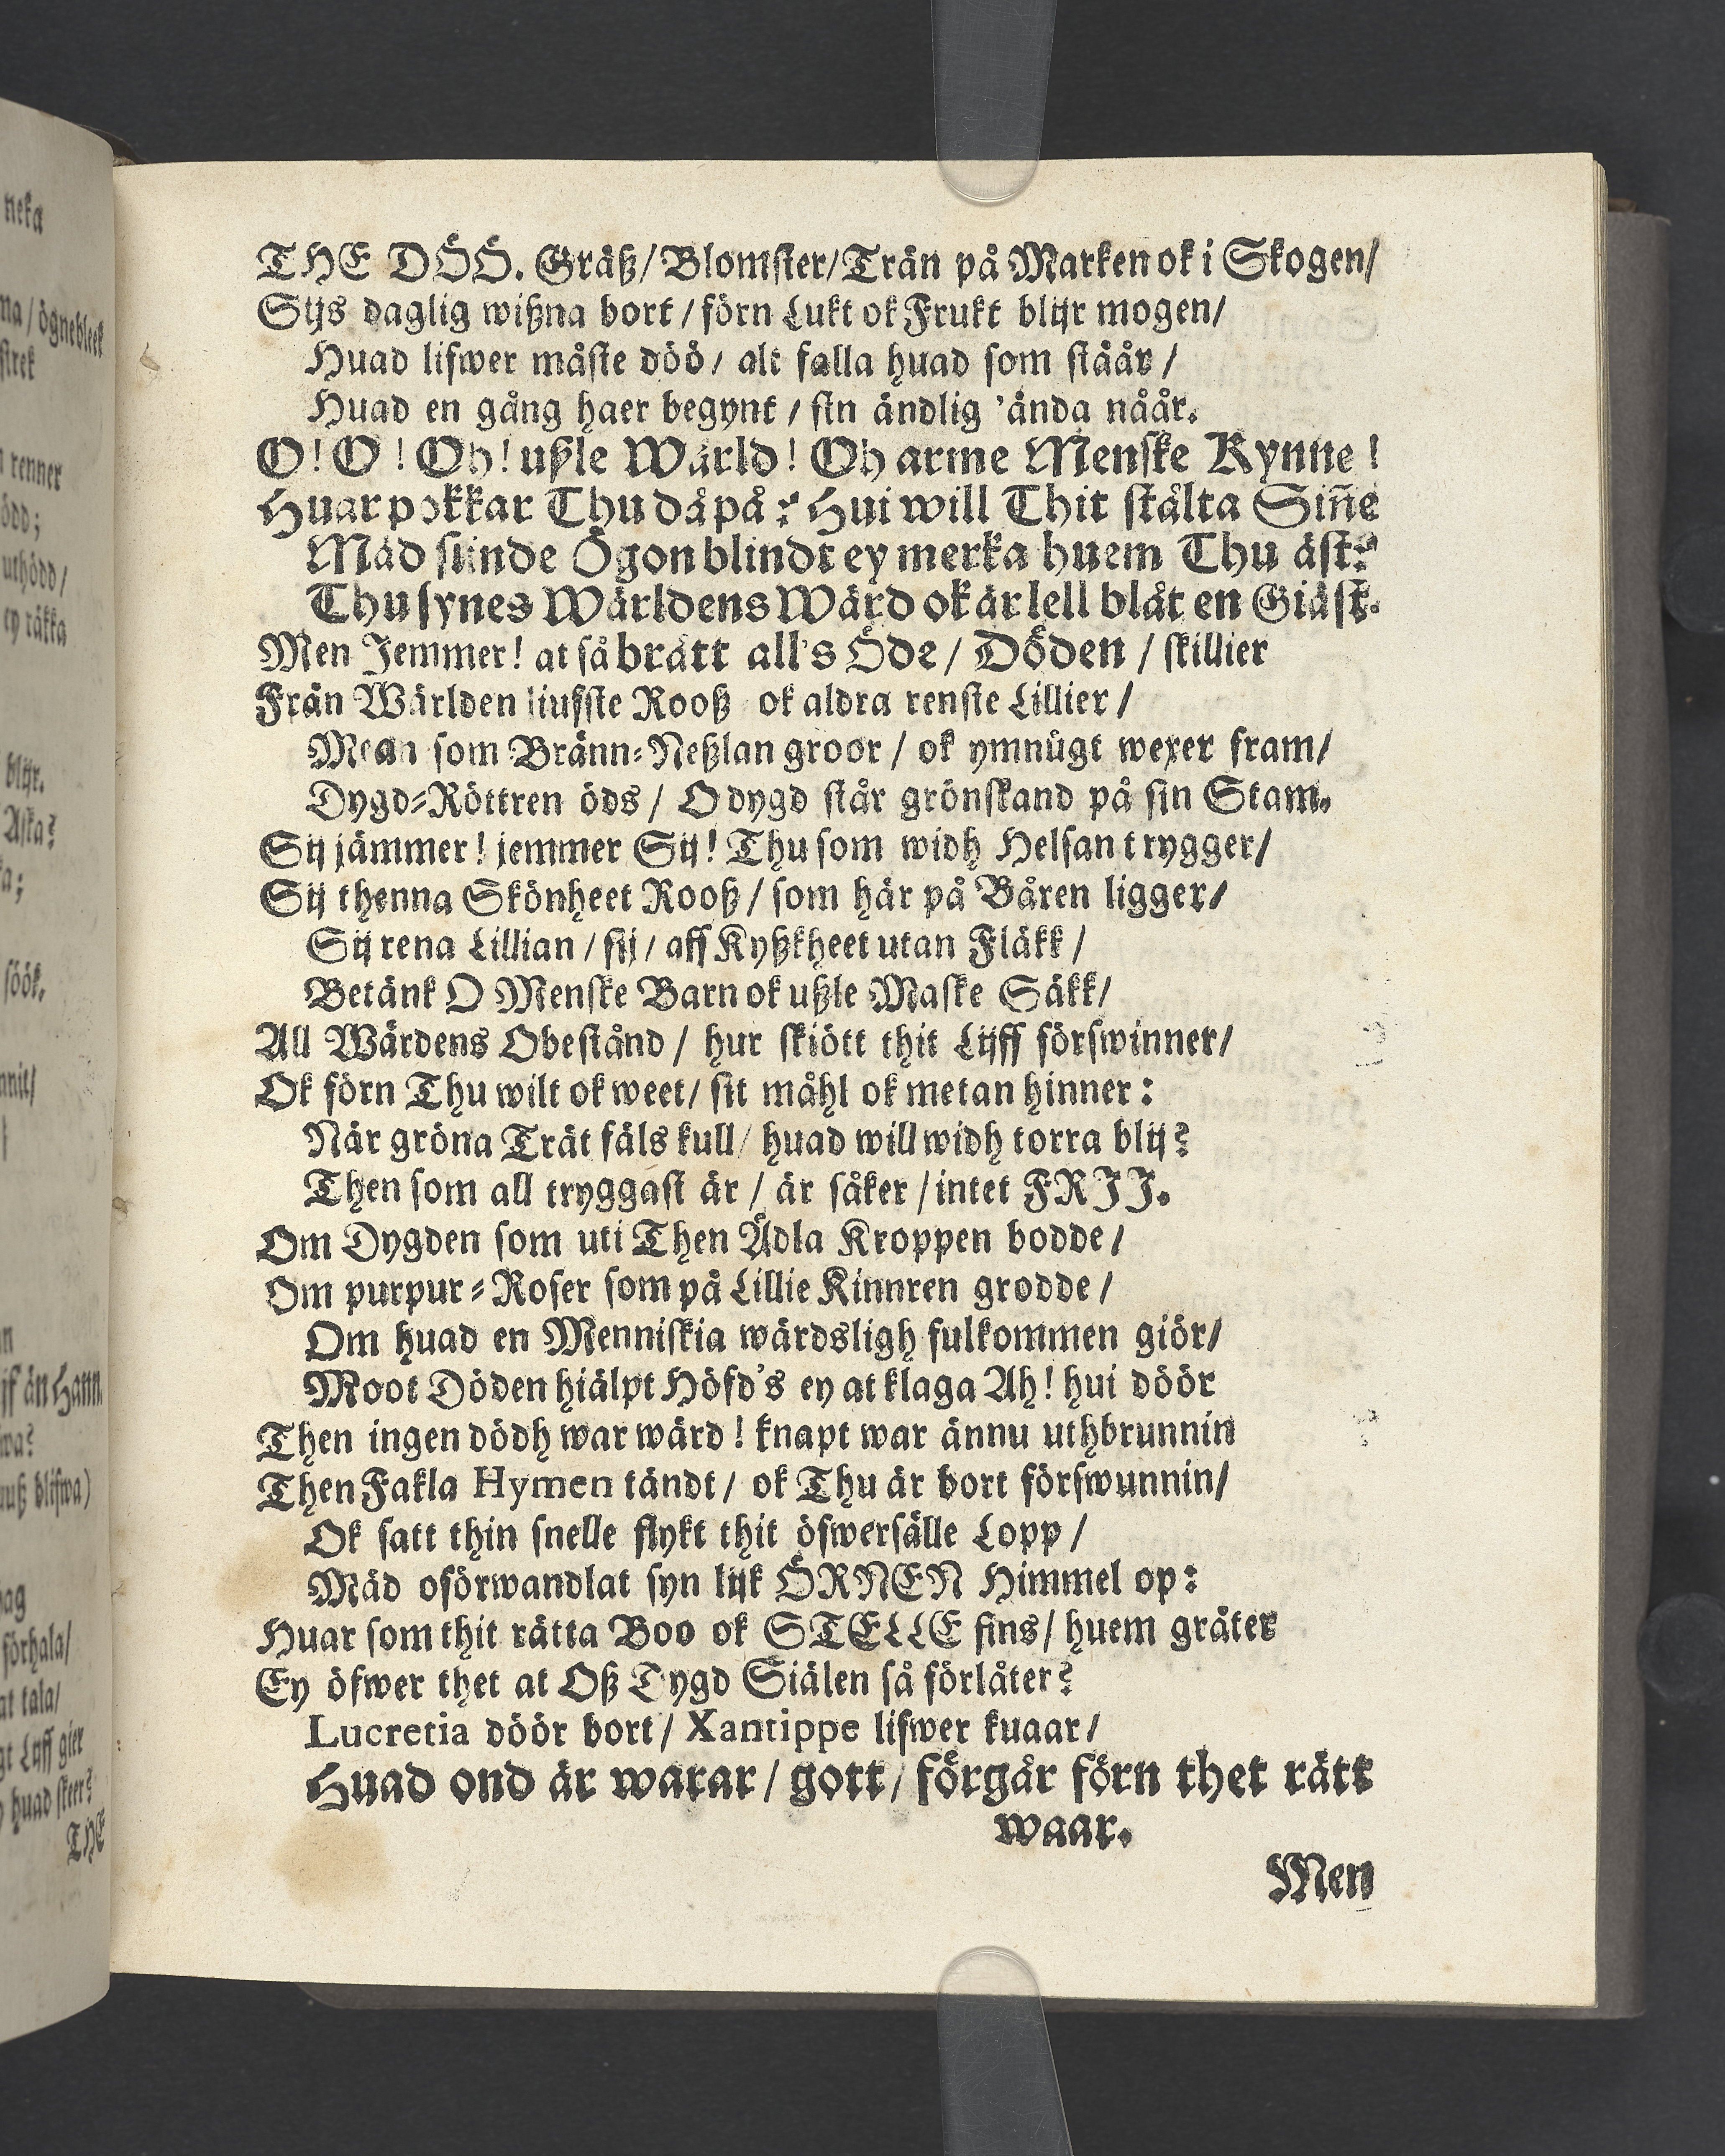 neka
na / ögnebleek
strek
renner
ödd;
uthödd /
ey räkka
blijr.
Aska?
a;
söök.
nnit /
jf än Hann.
wa?
nuß blifwa)
ag
förhala /
at tala /
gt Luff gier
huad skeer?
THE
THE DÖÖ. Gräß / Blomster / Trän på Marken ok i Skogen /
Sijs daglig wißna bort / förn Lukt ok Frukt blijr mogen /
Huad lifwer måste döö / alt falla huad som stäår /
Huad en gång haer begynt / sin ändlig 'ända nåår.
O! O! Oh! ußle Wärld! Oh arme Menske Kynne!
Huar pokkar Thu då på? Hui will Thit stålta Siñe
Mäd siinde Ögon blindt ey merka huem Thu äst?
Thu synes Wärldens Wärd ok är lell blåt en Giäst.
Men Jemmer! at så brått all's Öde / Döden / skillier
Från Wärlden liufste Rooß ok aldra renste Lillier /
Mean som Bränn-Neßlan groor / ok ymnügt wexer fram /
Dygd-Röttren öds / Odygd står grönskand på sin Stam.
Sij jämmer! jemmer Sij! Thu som widh Helsan trygger /
Sij thenna Skönheet Rooß / som här på Båren ligger /
Sij rena Lillian / sij / aff Kyßkheet utan Fläkk /
Betänk O Menske Barn ok ußle Maske Säkk /
All Wärdens Obestånd / hur skiött thit Lijff förswinner /
Ok förn Thu wilt ok weet / sit måhl ok metan hinner:
När gröna Trät fäls kull / huad will widh torra blij?
Then som all tryggast är / är såker / intet FRIJ.
Om Dygden som uti Then Ädla Kroppen bodde /
Om purpur-Roser som på Lillie Kinnren grodde /
Om huad en Menniskia wärdsligh fulkommen giör /
Moot Döden hiälpt Höfd's ey at klaga Ah! hui döör
Then ingen dödh war wärd! knapt war ännu uthbrunnin
Then Fakla Hymen tändt / ok Thu är bort förswunnin /
Ok satt thin snelle flykt thit öfwersälle Lopp /
Mäd oförwandlat syn lijk ÖRNEN Himmel op:
Huar som thit rätta Boo ok STELLE fins / huem gråter
Ey öfwer thet at Oß Dygd Siälen så förlåter?
Lucretia döör bort / Xantippe lifwer kuaar /
Huad ond är warar / gott / förgår förn thet rätt
waar.
Men